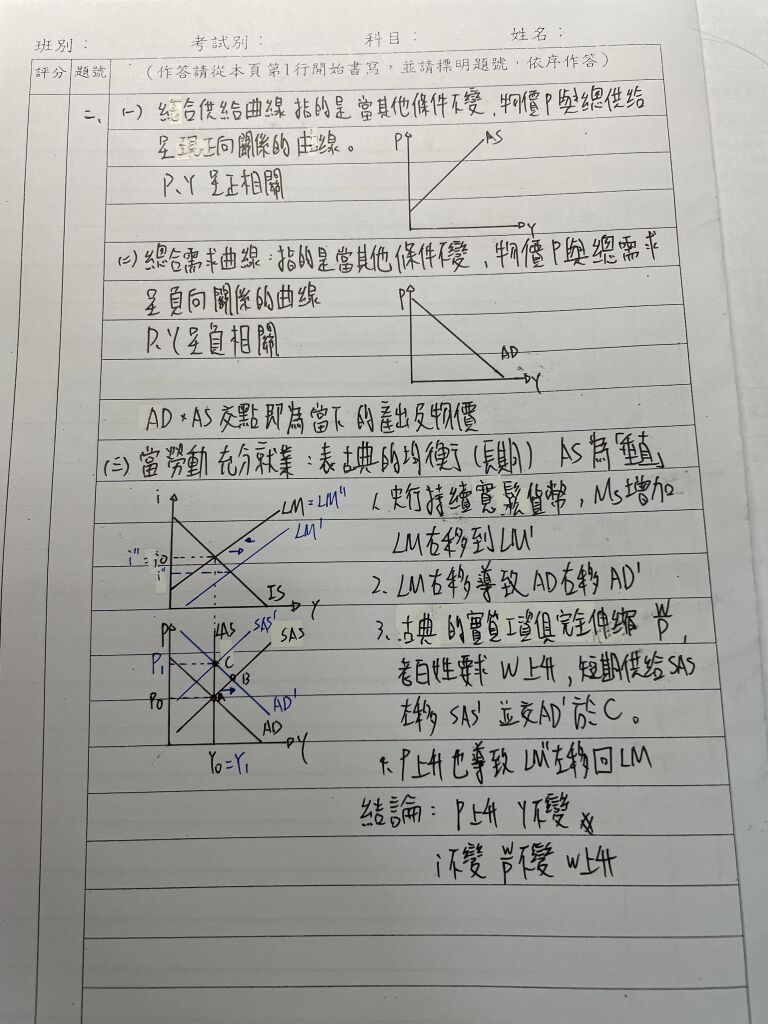 班別： 考試別： 科目： 姓名：
評分 題號 （作答請從本頁第1行開始書寫，並請標明題號，依序作答）
二、 (一) 總合供給曲線 指的是當其他條件不變，物價P與總供給
呈現正向關係的曲線。
P、Y 呈正相關
P AS Y
(二) 總合需求曲線：指的是當其他條件不變，物價P與總需求
呈負向關係的曲線
P、Y呈負相關
P AD Y
AD、AS 交點即為當下的產出及物價
(三) 當勞動充分就業：表古典的均衡行(長期) AS為「垂直」
i LM=LM" LM' i"=i0 i' IS Y
P LAS SAS' SAS P1 C B P0 A AD' AD Y Y0=Y1
1. 央行持續寬鬆貨幣，Ms增加
LM右移到LM'
2. LM右移導致AD右移AD'
3. 古典的實質工資俱完全伸縮 W/P，
老百姓要求 W上升，短期供給SAS
左移 SAS' 並交AD'於C。
4. P上升也導致 LM"左移回LM
結論： P上升 Y不變
i不變 W/P不變 W上升